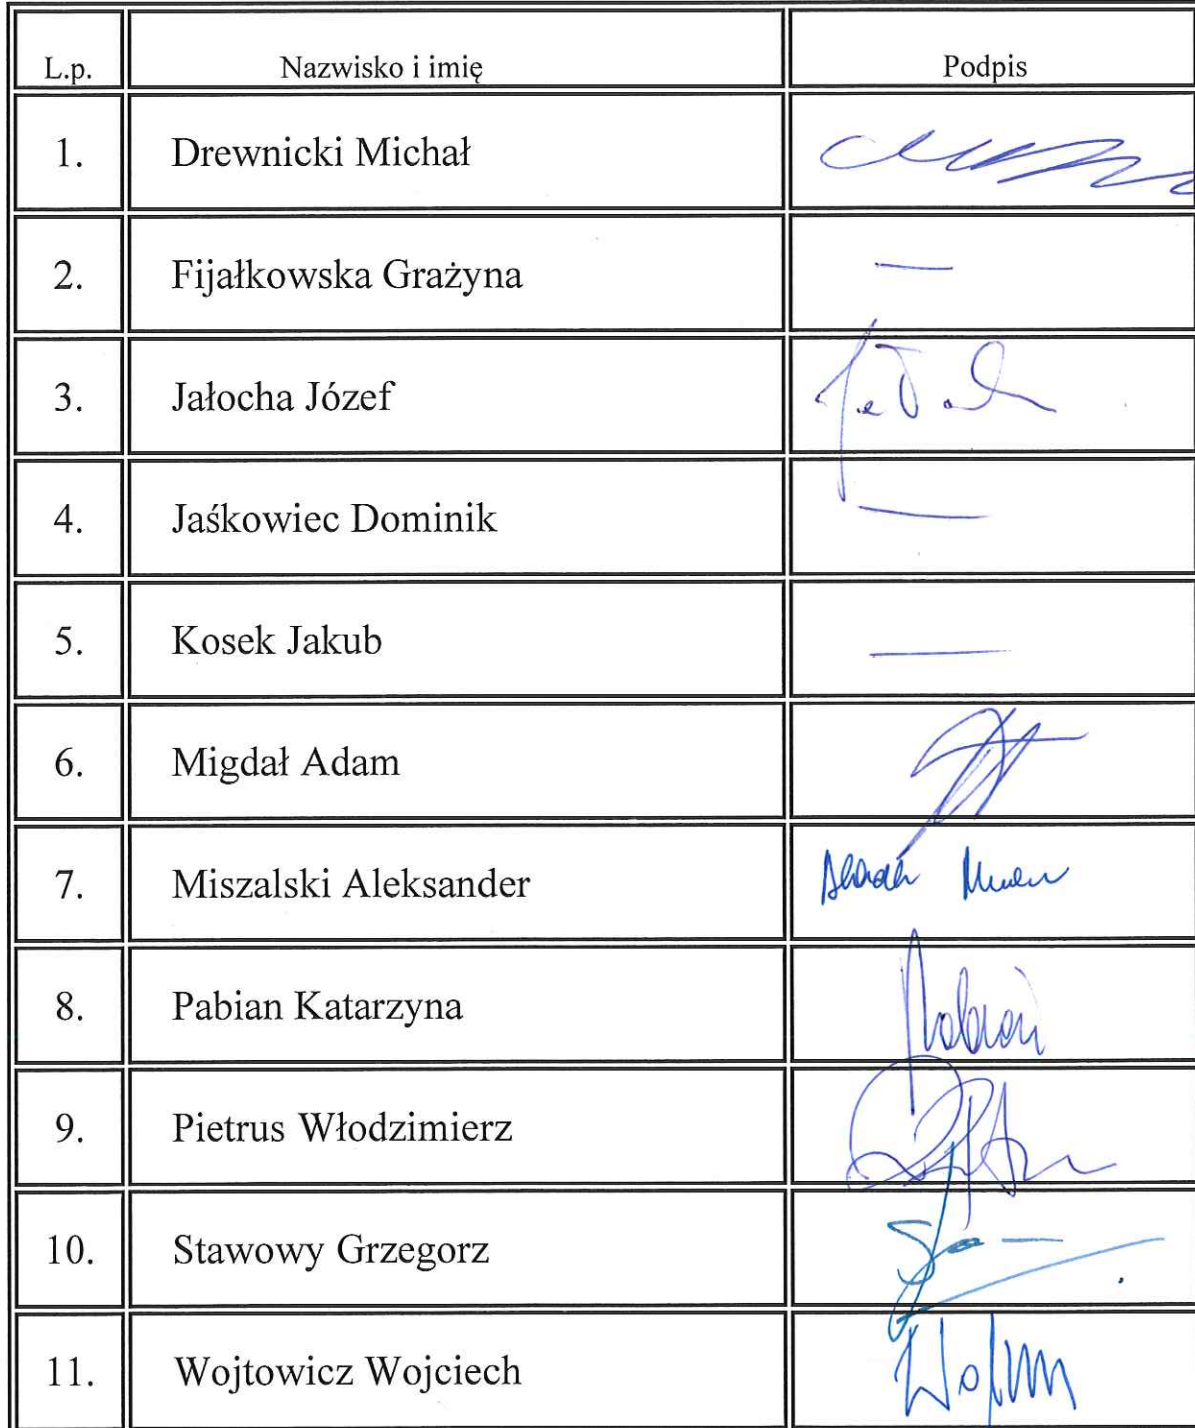 L.p. Nazwisko i imię Podpis
1. Drewnicki Michał
2. Fijałkowska Grażyna —
3. Jałocha Józef
4. Jaśkowiec Dominik —
5. Kosek Jakub —
6. Migdał Adam
7. Miszalski Aleksander
8. Pabian Katarzyna
9. Pietrus Włodzimierz
10. Stawowy Grzegorz
11. Wojtowicz Wojciech